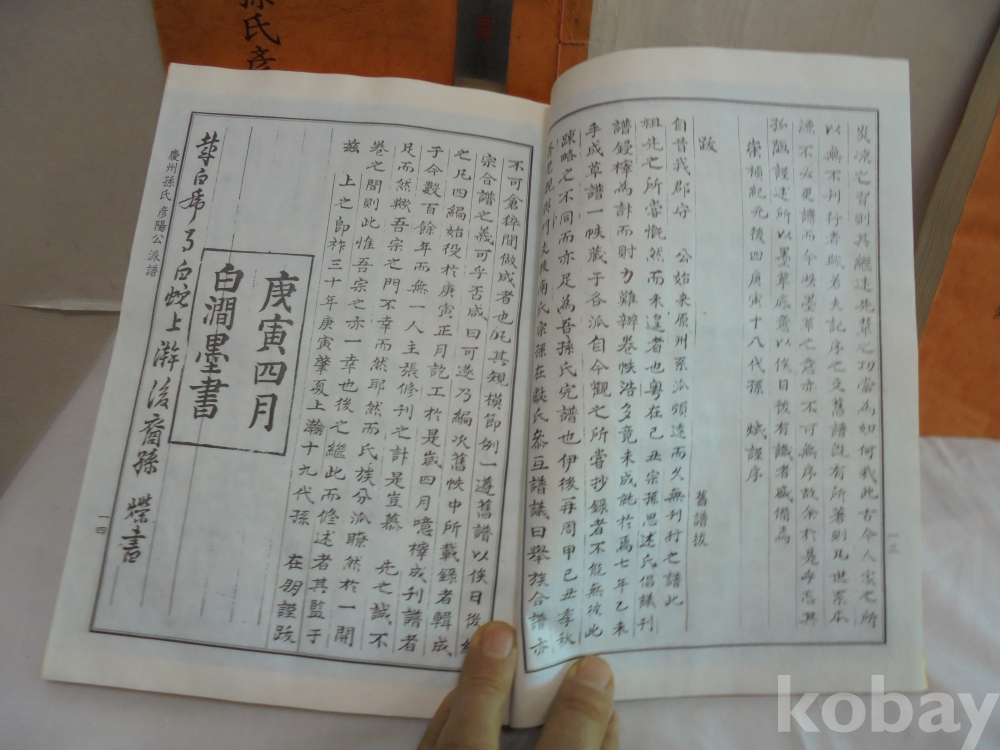 孫氏彦
炎凉之習則其繼述先業之功當為如何哉此古今人家之所
以無不刊行者歟若夫記序之文舊譜旣有所著則凡世系原
源不必更購而今此墨草之意亦不可無序故余於是乎忘其
孤陋謹述所以墨草底意以俟日後有識者感備焉
崇禎紀元後四庚寅十八代孫 斌謹序
跋 舊譜拔
自昔我郡守 公始来原州系派頗遠而久無刊行之譜此
祖先之所嘗慨然而未遑者也粤在己丑宗孫思述氏倡議刊
譜鋟梓為計而財力難辦卷帙浩多竟未成就於焉七年乙未
手成草譜一帙藏于各派自今觀之所嘗抄錄者不能無詳此
踈略之不同而亦足為吾孫氏完譜也伊後再周甲己丑季秋
氏宗孫在 氏叅互譜議曰舉族合譜亦
不可倉猝間做成者也凡其規模節例一遵舊譜以俟日後
宗合譜之義可乎否咸曰可遂乃編次舊帙中所載錄者輯成
之凡四編始役於庚寅正月訖工於是歲四月噫梓成刊譜者
于今數百餘年而無一人主張修刊之計是豈慕 先之誠不
足而然歟吾宗之門不幸而然耶然而氏族分派瞭然於一開
卷之間則此惟吾宗之亦一幸也後之繼此而修述者其監于
玆 上之卽祚三十年庚寅肇夏上澣十九代孫 在明謹跋
庚寅四月
白澗墨書
白 白蛇上澣後裔孫 榮書
慶州孫氏 彦陽公派譜
一四
一三
kobay